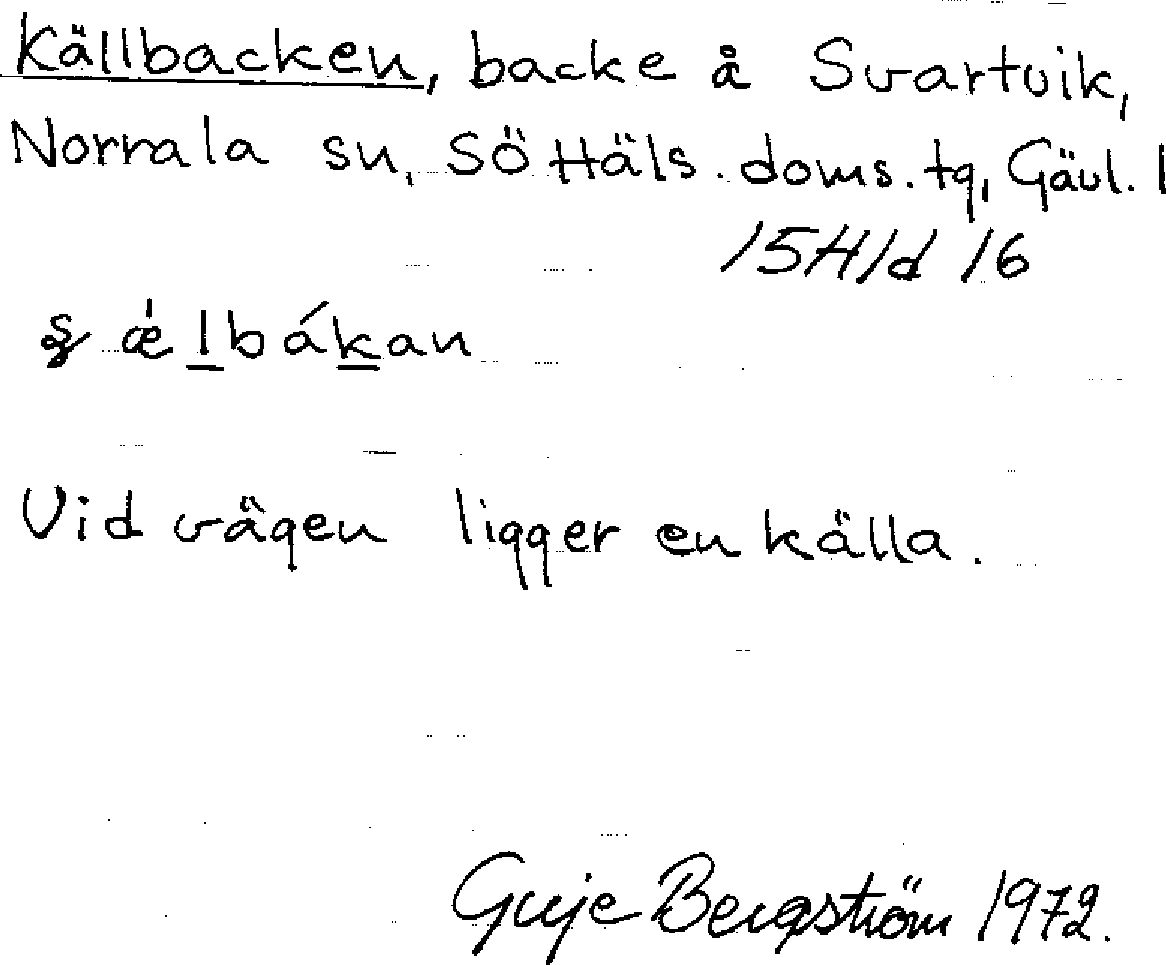 Källbacken, backe å Svartvik,
Norrala sn, SöHäls. doms. tg, Gävl. l
15H1d 16
ʂ ǽlbákan
Vid vägen ligger en källa.
Guje Bergström 1972.